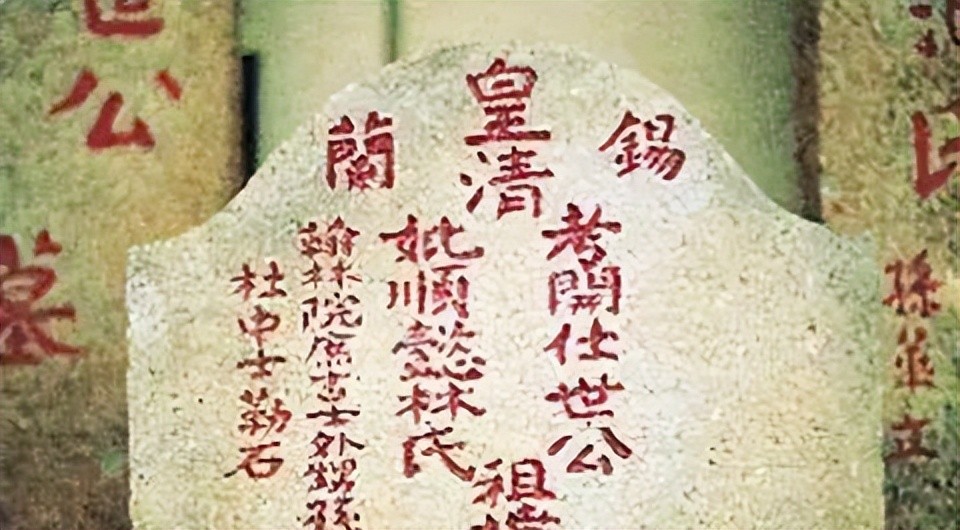 孫並立
皇清
錫蘭
考開仕世公
祖
妣順懿林氏
翰林院庶吉士外甥孫
杜中士勒石
世公
墓